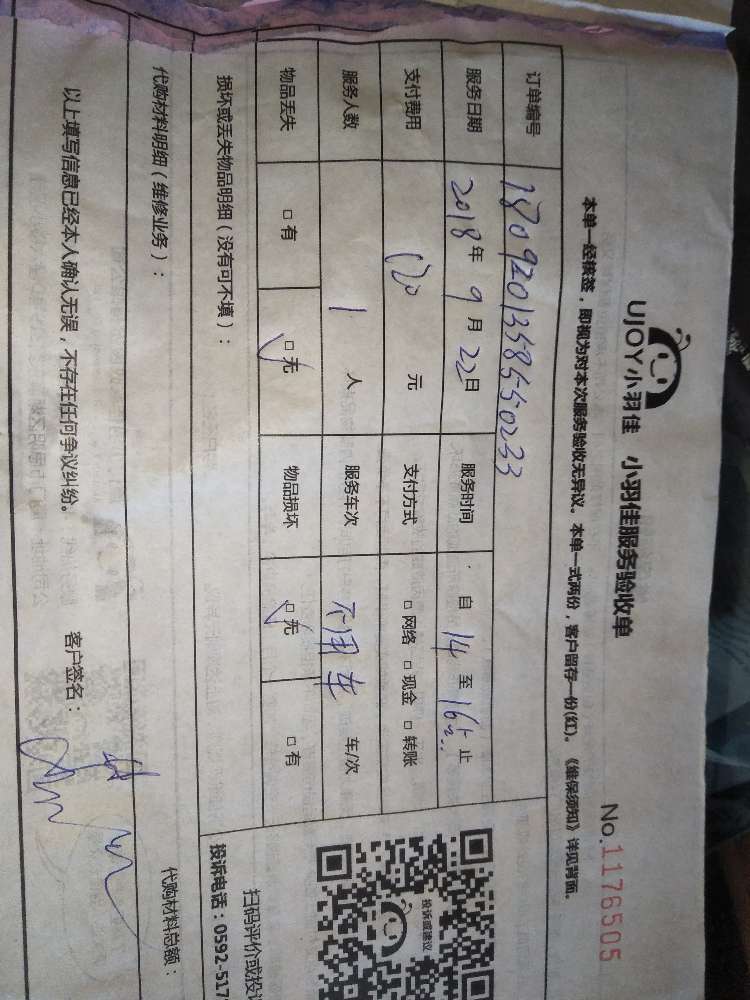 UJOY小羽佳 小羽佳服务验收单
No.1176505
本单一经核签，即视为对本次服务验收无异议。本单一式两份，客户留存一份(红)。《维保须知》详见背面。
订单编号 1809201358550233
服务日期 2018年 9 月 22日 服务时间 自 14 至 16 止
支付费用 元 支付方式 □网络 □现金 □转账
服务人数 1 人 服务车次 不用车 车/次
物品丢失 □有 □无 物品损坏 □无 □有
损坏或丢失物品明细（没有可不填）：
投诉或建议
扫码评价或投
投诉电话：0592-517
代购材料明细（维修业务）：
代购材料总额：
以上填写信息已经本人确认无误，不存在任何争议纠纷。 客户签名：